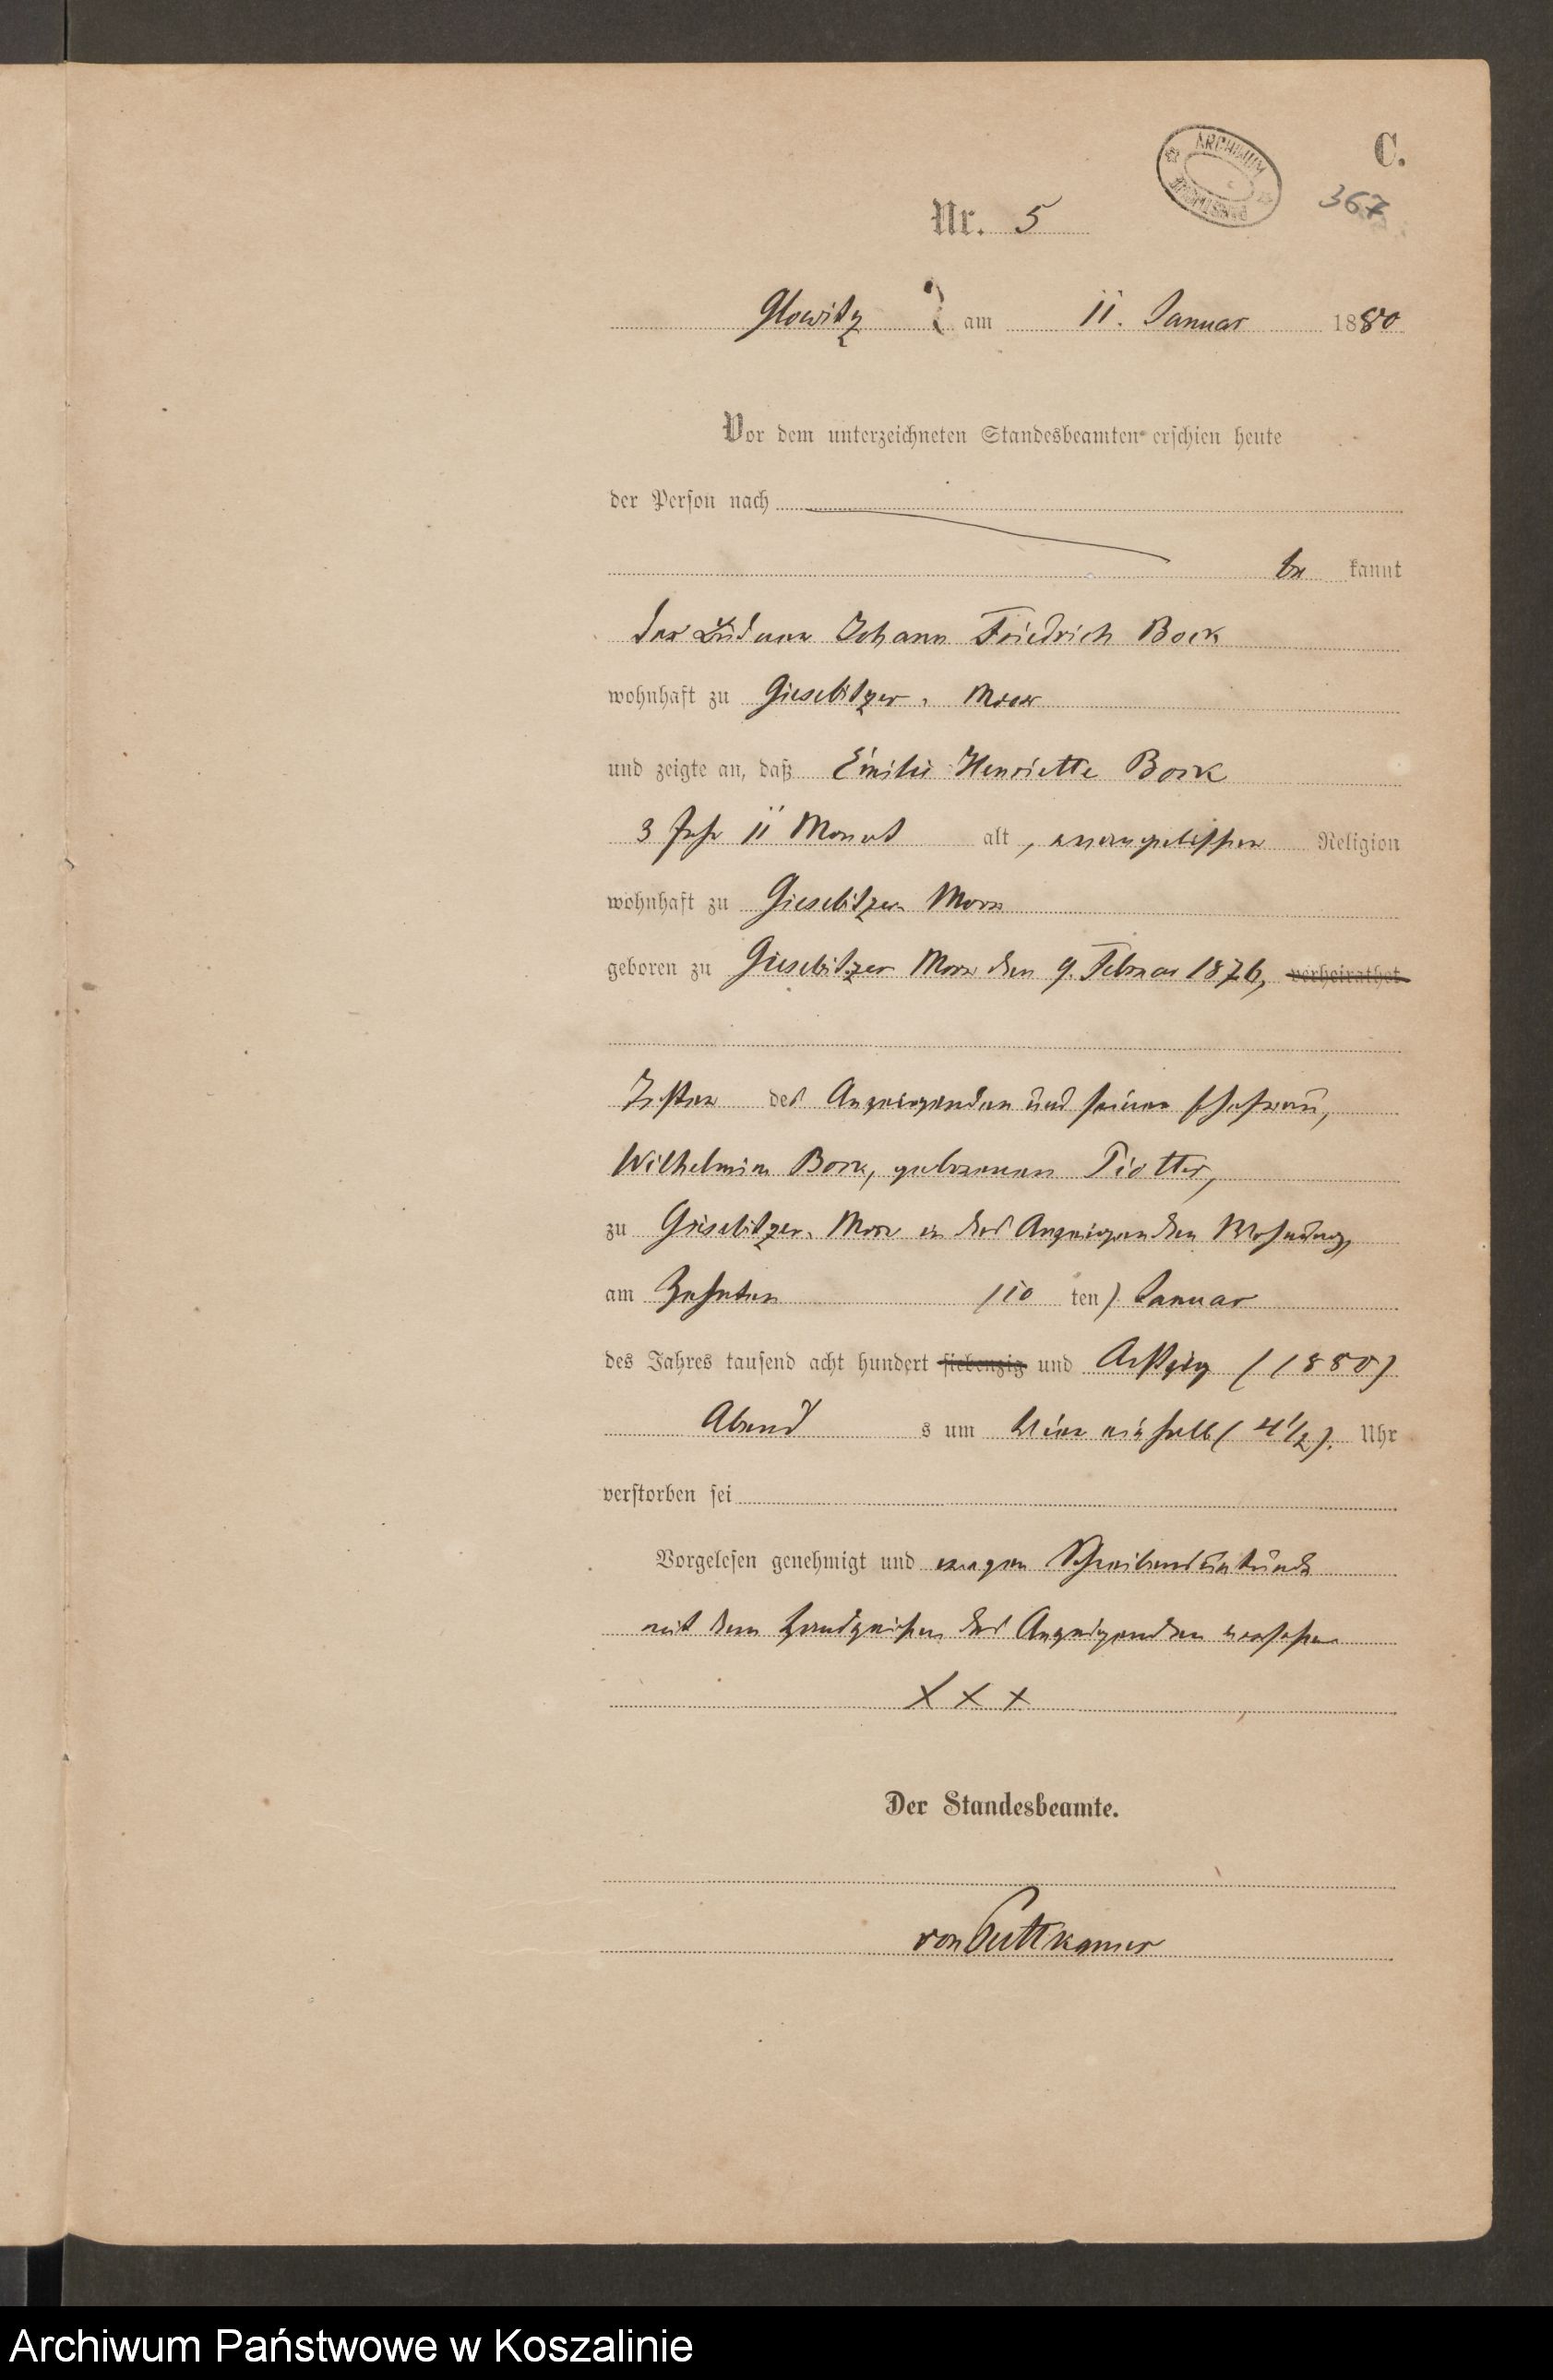 C.
ARCHIWUM
367
Nr. 5
Glowitz am 11. Januar 1880
Vor dem unterzeichneten Standesbeamten erschien heute
der Person nach
be kannt
der Büdner Johann Friedrich Bock
wohnhaft zu Giesebitzer Moor
und zeigte an, daß Emilie Henriette Bock
3 Jahr 11 Monat alt, evangelischer Religion
wohnhaft zu Giesebitzer Moor
geboren zu Giesebitzer Moor den 9. Februar 1876, verheirathet
Tochter des Anzeigenden und seiner Ehefrau,
Wilhelmine Bock, geborenen Piotter,
zu Giesebitzer Moor in des Anzeigenden Wohnung,
am Zehnten (10 ten) Januar
des Jahres tausend acht hundert siebenzig und Achtzig (1880)
Abend s um vier ein halb (4 1/2) Uhr
verstorben sei
Vorgelesen genehmigt und wegen Schreibensunkunde
mit dem Handzeichen des Anzeigenden versehen
X X X
Der Standesbeamte.
von Puttkamer
Archiwum Państwowe w Koszalinie